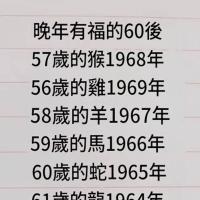 晚年有福的60後
57歲的猴1968年
56歲的雞1969年
58歲的羊1967年
59歲的馬1966年
60歲的蛇1965年
61歲的龍1964年